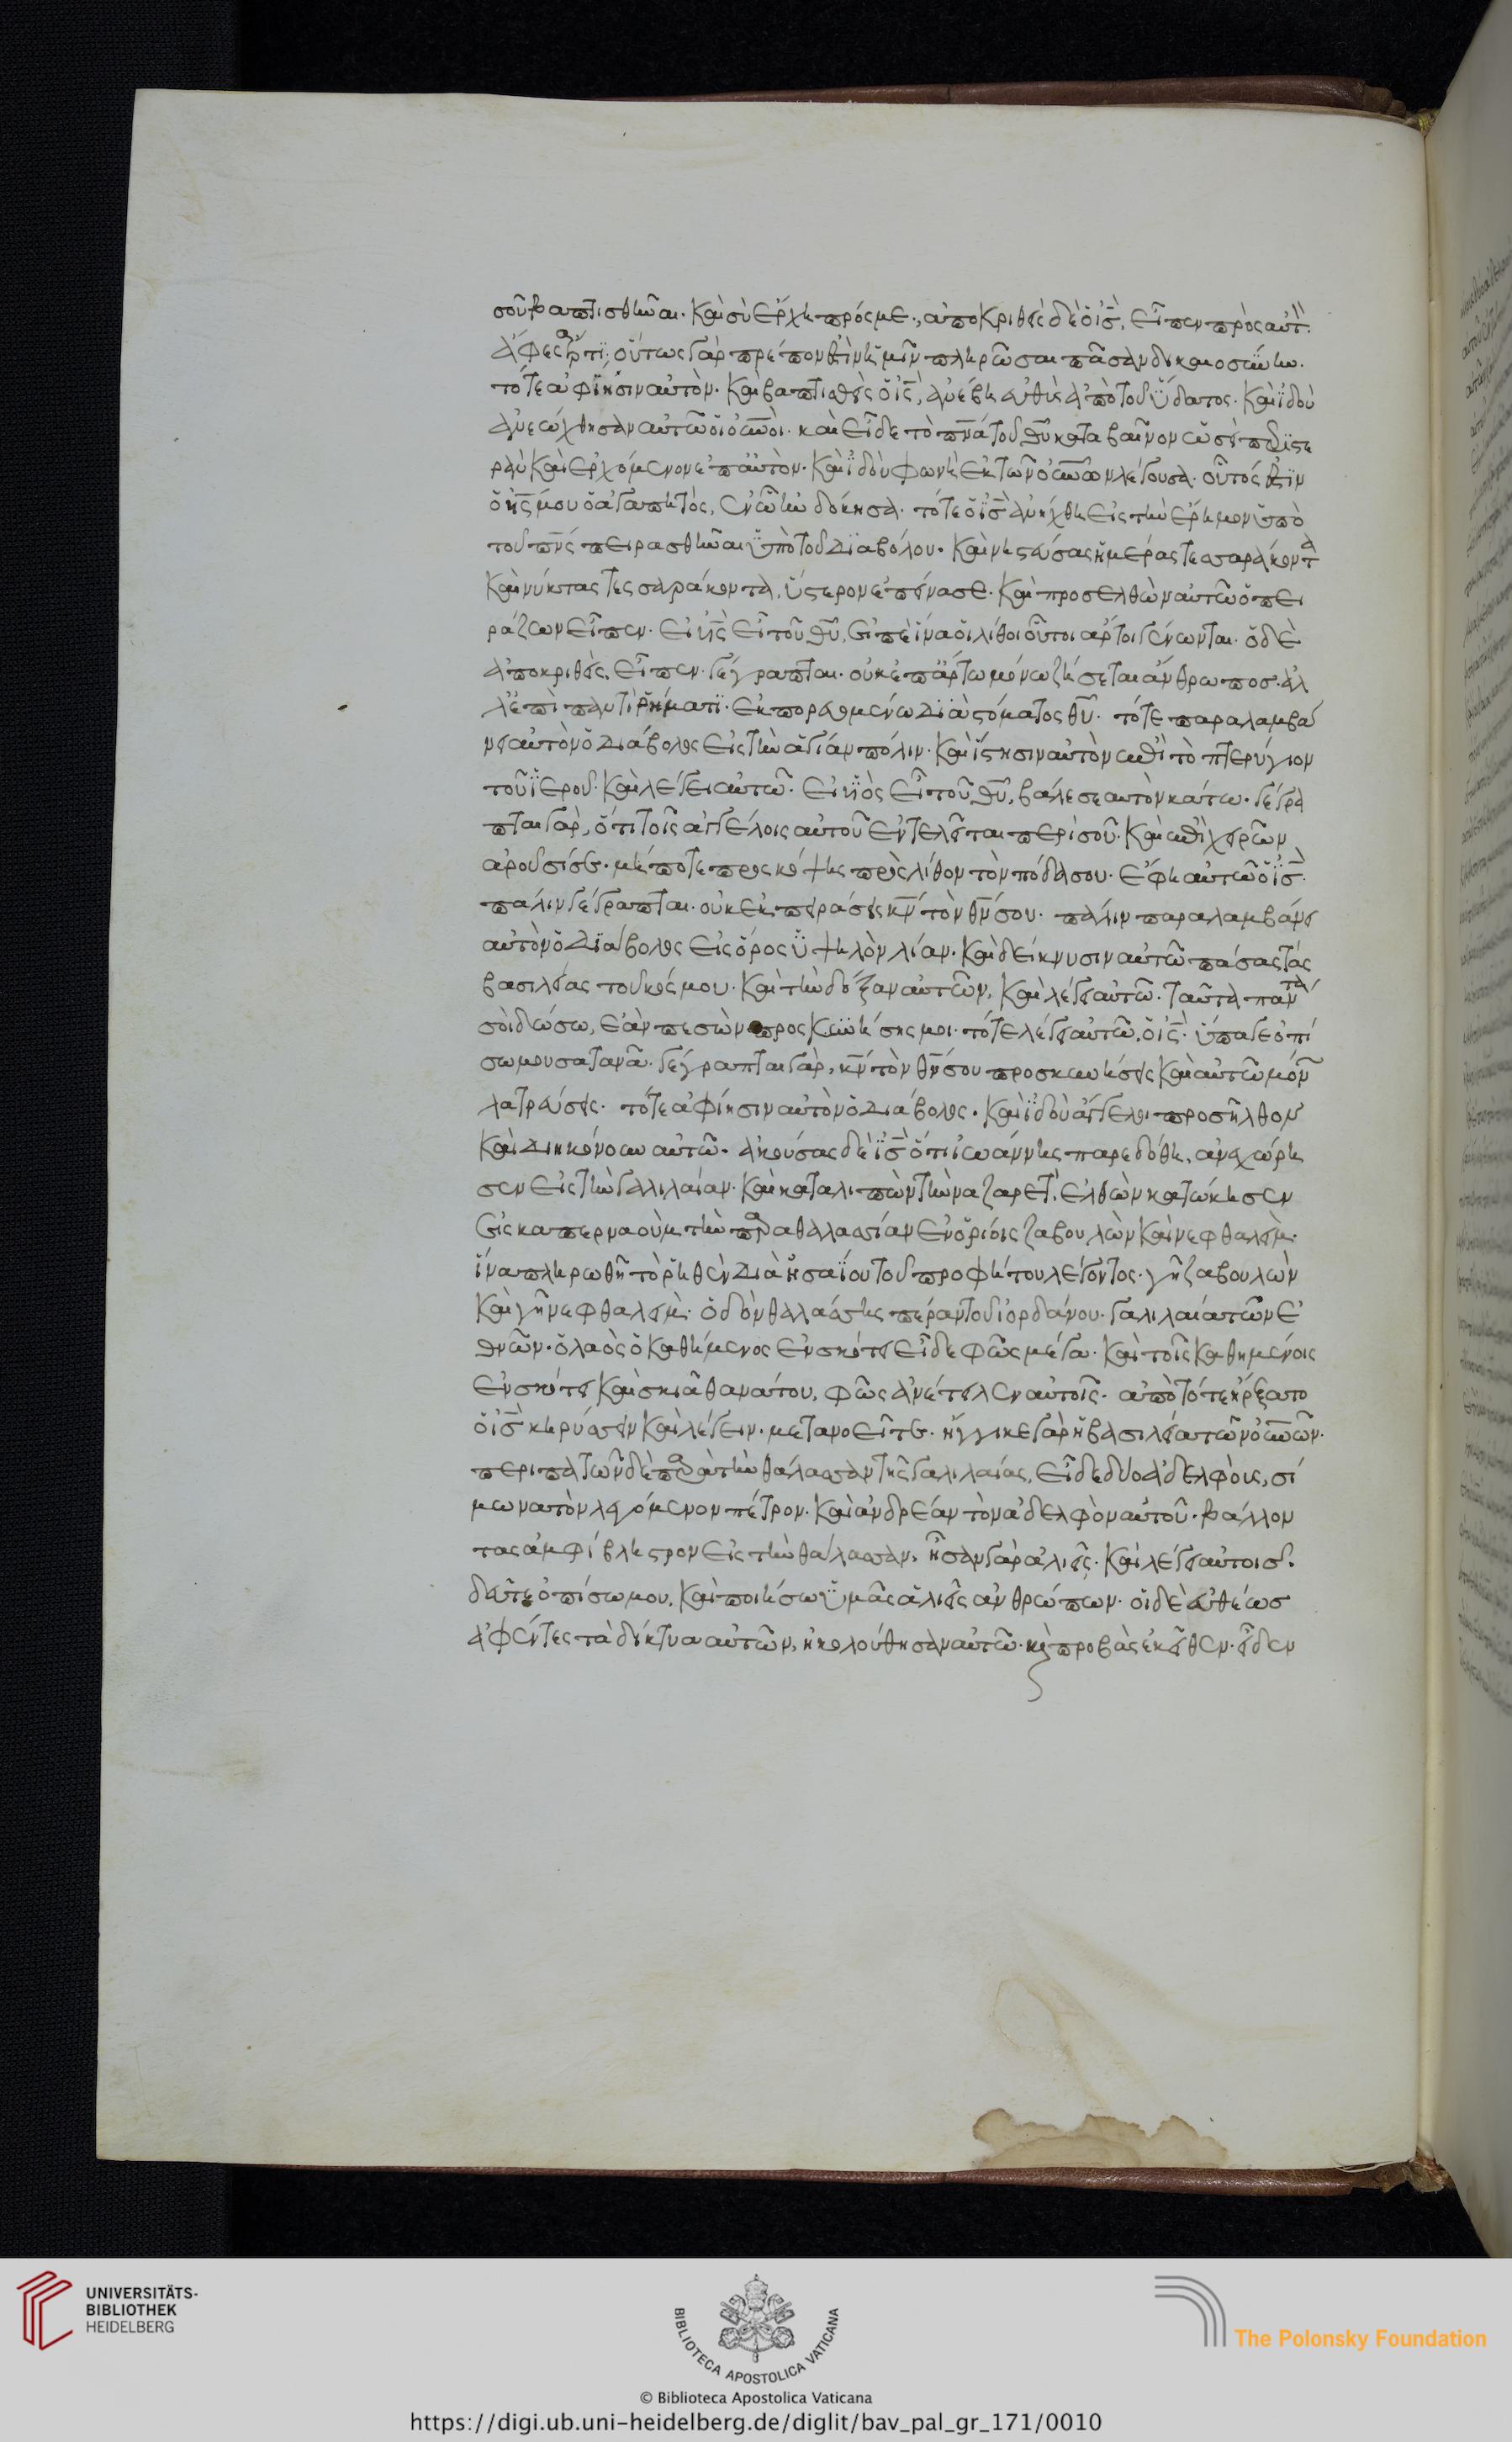 σοῦ βαπτισθῆναι· καὶ σὺ ἔρχη πρός με· ἀποκριθεὶς δὲ ὁ ἰς̅, εἶπεν πρὸς αὐτ̀·
ἄφες ἄρτϊ· οὕτως γὰρ πρέπον ἐστὶν ἡμῖν πληρῶσαι πᾶσαν δικαιοσύνην·
τότε ἀφίησιν αὐτὸν· καὶ βαπτισθεὶς ὁ ἰς̅, ἀνέβη εὐθὺς ἀπὸ τοῦ ὕδατος· καὶ ἰδοὺ
ἀνεώχθησαν αὐτῶ οἱ οὐν̅οι· καὶ εἶδε τὸ πν̅α τοῦ θυ̅ καταβαῖνον ὡσεὶ περϊστε
ρὰν καὶ ἐρχόμενον ἐπ' αὐτὸν· καὶ ἰδοὺ φωνὴ ἐκ τῶν οὐν̅ων λέγουσα· οὗτός ἐστϊν
ὁ υἱς̅ μου ὁ ἀγαπητὸς, ἐν ὧ ηὐδόκησα· τότε ὁ ἰς̅ ἀνήχθη εἰς τὴν ἔρημον ὑπὸ
τοῦ πν̅ς πειρασθῆναι ὑπὸ τοῦ διαβόλου· καὶ νηστεύσας ἡμέρας τεσσαράκοντα
καὶ νύκτας τεσσαράκοντα, ὕστερον ἐπείνασε· καὶ προσελθὼν αὐτῶ ὁ πει
ράζων εἶπεν· εἰ υἱς̅ εἶ τοῦ θυ̅, εἰπὲ ἵνα οἱ λίθοι οὗτοι ἄρτοι γένωνται· ὁ δὲ
ἀποκριθεὶς, εἶπεν· γέγραπται· οὐκ ἐπ' ἄρτω μόνω ζήσεται ἄνθρωπος· ἀλ
λ' ἐπὶ παντὶ ῥήματϊ· ἐκπορευομένω διὰ στόματος θυ̅· τότε παραλαμβά
νει αὐτὸν ὁ διάβολος εἰς τὴν ἁγίαν πόλιν· καὶ ἵστησιν αὐτὸν ἐπὶ τὸ πτερύγιον
τοῦ ἱεροῦ· καὶ λέγει αὐτῶ· εἰ υἱὸς εἶ τοῦ θυ̅, βάλε σεαυτὸν κάτω· γέγρα
πται γὰρ, ὅτι τοῖς ἀγγέλοις αὐτοῦ ἐντελεῖται περὶ σοῦ· καὶ ἐπὶ χειρῶν
ἀροῦσί σε· μήποτε προσκόψης πρὸς λίθον τὸν πόδα σου· ἔφη αὐτῶ ὁ ἰς̅·
πάλιν γέγραπται· οὐκ ἐκπειράσεις κν̅ τὸν θν̅ σου· πάλιν παραλαμβάνει
αὐτὸν ὁ διάβολος εἰς ὄρος ὑψηλὸν λίαν· καὶ δείκνυσιν αὐτῶ πάσας τὰς
βασιλείας τοῦ κόσμου· καὶ τὴν δόξαν αὐτῶν, καὶ λέγει αὐτῶ· ταῦτα πάντα
σοὶ δώσω, ἐὰν πεσὼν προσκυνήσης μοι· τότε λέγει αὐτῶ, ὁ ἰς̅· ὕπαγε ὀπί
σω μου σατανᾶ· γέγραπται γὰρ, κν̅ τὸν θν̅ σου προσκυνήσεις καὶ αὐτῶ μόν
λατρεύσεις· τότε ἀφίησιν αὐτὸν ὁ διάβολος· καὶ ἰδοὺ ἄγγελοι προσῆλθον
καὶ διηκόνουν αὐτῶ· ἀκούσας δὲ ἰς̅ ὅτι ἰωάννης παρεδόθη, ἀνεχώρη
σεν εἰς τὴν γαλιλαίαν· καὶ καταλιπὼν τὴν ναζαρετ̀, ἐλθὼν κατώκησεν
εἰς καπερναοὺμ τὴν παραθαλασσίαν ἐν ὁρίοις ζαβουλὼν καὶ νεφθαλεὶμ·
ἵνα πληρωθῆ τὸ ῥηθὲν διὰ ἡσαΐου τοῦ προφήτου λέγοντος· γῆ ζαβουλὼν
καὶ γῆ νεφθαλεὶμ· ὁδὸν θαλάσσης πέραν τοῦ ἰορδάνου· γαλιλαία τῶν ἐ
θνῶν· ὁ λαὸς ὁ καθήμενος ἐν σκότει εἶδε φῶς μέγα· καὶ τοῖς καθημένοις
ἐν σκότει καὶ σκιᾶ θανάτου, φῶς ἀνέτειλεν αὐτοῖς· ἀπὸ τότε ἤρξατο
ὁ ἰς̅ κηρύσσειν καὶ λέγειν· μετανοεῖτε· ἤγγικε γὰρ ἡ βασιλεία τῶν οὐν̅ων·
περιπατῶν δὲ παρὰ τὴν θάλασσαν τῆς γαλιλαίας, εἶδε δύο ἀδελφοὺς, σί
μωνα τὸν λεγόμενον πέτρον· καὶ ἀνδρέαν τὸν ἀδελφὸν αὐτοῦ· βάλλον
τας ἀμφίβληστρον εἰς τὴν θάλασσαν, ἦσαν γὰρ ἁλιεῖς· καὶ λέγει αὐτοῖς·
δεῦτε ὀπίσω μου, καὶ ποιήσω ὑμᾶς ἁλιεῖς ἀνθρώπων· οἱ δὲ εὐθέως
ἀφέντες τὰ δίκτυα αὐτῶν, ἠκολούθησαν αὐτῶ· κ(αὶ) προβὰς ἐκεῖθεν· εἶδεν
UNIVERSITÄTS-
BIBLIOTHEK
HEIDELBERG
BIBLIOTECA APOSTOLICA VATICANA
The Polonsky Foundation
© Biblioteca Apostolica Vaticana
https://digi.ub.uni-heidelberg.de/diglit/bav_pal_gr_171/0010